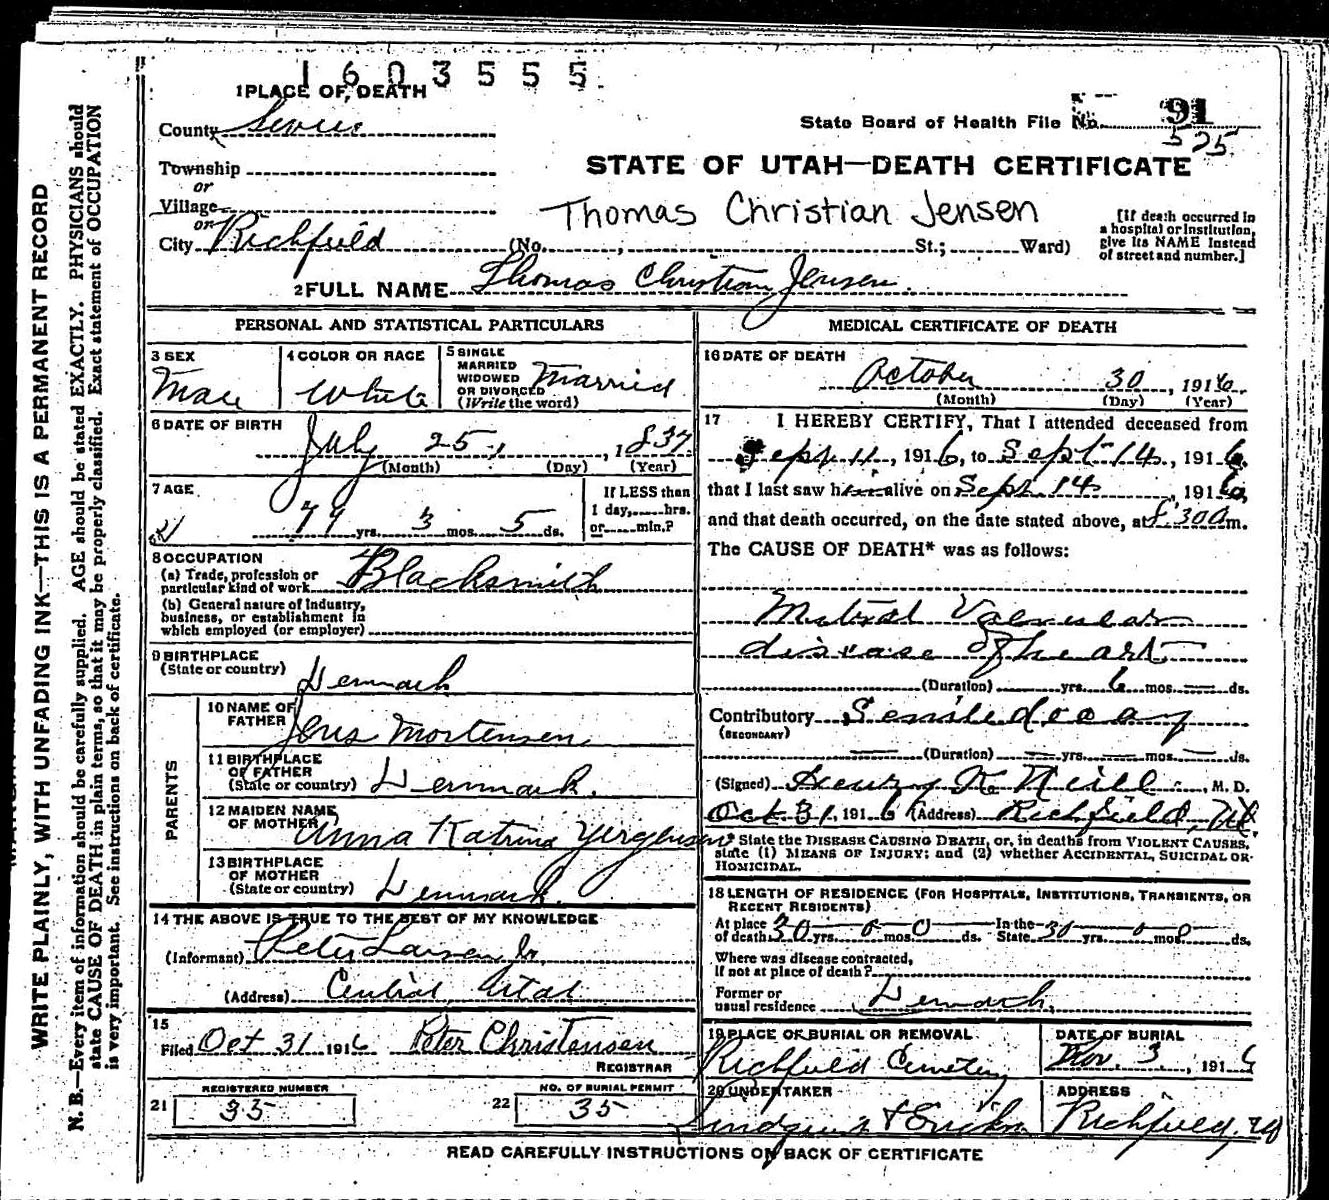 1603555
1 PLACE OF DEATH
County Sevier
State Board of Health File No. 91
525
Township
or
Village
or
City Richfield
STATE OF UTAH—DEATH CERTIFICATE
Thomas Christian Jensen
(No. , St.; Ward)
[If death occurred in
a hospital or institution,
give its NAME instead
of street and number.]
2 FULL NAME Thomas Christian Jensen.
PERSONAL AND STATISTICAL PARTICULARS
3 SEX
Male
4 COLOR OR RACE
White
5 SINGLE
MARRIED
WIDOWED
OR DIVORCED
(Write the word)
Married
6 DATE OF BIRTH
July 25, 1837
(Month) (Day) (Year)
7 AGE
79 yrs. 3 mos. 5 ds.
If LESS than
1 day, hrs.
or min.?
8 OCCUPATION
(a) Trade, profession or
particular kind of work Blacksmith
(b) General nature of Industry,
business, or establishment in
which employed (or employer)
9 BIRTHPLACE
(State or country)
Denmark
PARENTS
10 NAME OF
FATHER
Jens Mortensen
11 BIRTHPLACE
OF FATHER
(State or country) Denmark.
12 MAIDEN NAME
OF MOTHER
Anna Katrina Yergensen
13 BIRTHPLACE
OF MOTHER
(State or country) Denmark.
14 THE ABOVE IS TRUE TO THE BEST OF MY KNOWLEDGE
(Informant) Peter Larsen Jr.,
(Address) Central, Utah
15
Filed Oct 31 1916 Peter Christensen
REGISTRAR
REGISTERED NUMBER
21 35
NO. OF BURIAL PERMIT
22 35
MEDICAL CERTIFICATE OF DEATH
16 DATE OF DEATH
October 30, 1916
(Month) (Day) (Year)
17 I HEREBY CERTIFY, That I attended deceased from
Sept 11, 1916, to Sept 14, 1916,
that I last saw him alive on Sept. 14, 1916,
and that death occurred, on the date stated above, at 8.30 a m.
The CAUSE OF DEATH* was as follows:
Mitral Valvular
disease of heart
(Duration) yrs. 6 mos. ds.
Contributory Senile decay
(SECONDARY)
(Duration) yrs. mos. ds.
(Signed) Henry K. Neill, M. D.
Oct 31, 1916 (Address) Richfield, Ut.
* State the DISEASE CAUSING DEATH, or, in deaths from VIOLENT CAUSES,
state (1) MEANS OF INJURY; and (2) whether ACCIDENTAL, SUICIDAL OR
HOMICIDAL.
18 LENGTH OF RESIDENCE (FOR HOSPITALS, INSTITUTIONS, TRANSIENTS, OR
RECENT RESIDENTS)
At place
of death 30 yrs. 0 mos. 0 ds. In the
State 30 yrs. 0 mos. 0 ds.
Where was disease contracted,
if not at place of death?
Former or
usual residence Denmark.
19 PLACE OF BURIAL OR REMOVAL
Richfield Cemetery
DATE OF BURIAL
Nov. 3, 1916
20 UNDERTAKER
ADDRESS
Richfield,
READ CAREFULLY INSTRUCTIONS ON BACK OF CERTIFICATE
WRITE PLAINLY, WITH UNFADING INK—THIS IS A PERMANENT RECORD
N. B.—Every item of information should be carefully supplied. AGE should be stated EXACTLY. PHYSICIANS should
state CAUSE OF DEATH in plain terms, so that it may be properly classified. Exact statement of OCCUPATION
is very important. See instructions on back of certificate.